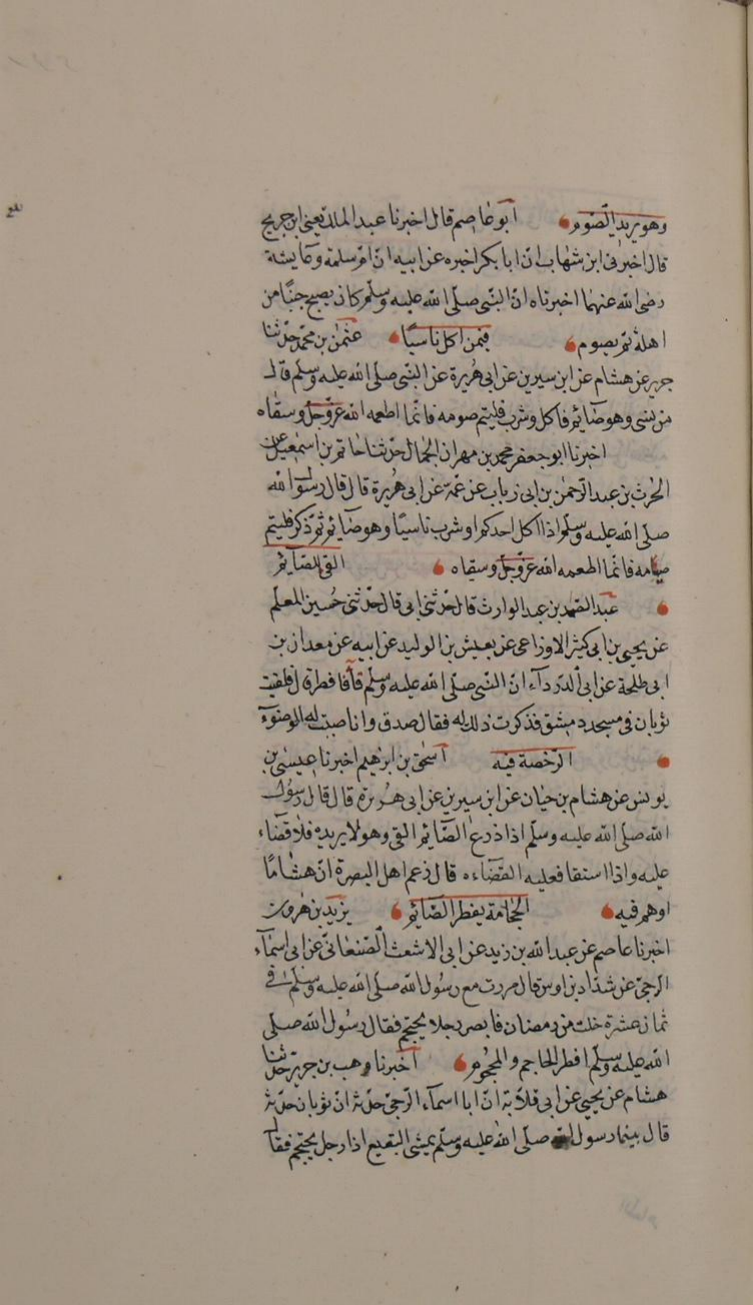 وهو يريد الصوم ابو عاصم قال اخبرنا عبد الملك يعني ابن جريج
قال اخبرني ابن شهاب ان ابا بكر اخبره عن ابيه ان ام سلمة وعايشة
رضي الله عنهما اخبرتاه ان النبي صلى الله عليه وسلم كان يصبح جنبا من
اهله ثم يصوم فيمن اكل ناسيا عثمن بن محمد حدثنا
جرير عن هشام عن ابن سيرين عن ابي هريرة عن النبي صلى الله عليه وسلم قال
من نسي وهو صائم فاكل وشرب فليتم صومه فانما اطعمه الله عز وجل وسقاه
اخبرنا ابو جعفر محمد بن مهران الجمال حدثنا حاتم بن اسمعيل عن
الحرث بن عبد الرحمن بن ابي ذباب عن عمه عن ابي هريرة قال قال رسول الله
صلى الله عليه وسلم اذا اكل احدكم او شرب ناسيا وهو صائم ثم ذكر فليتم
صيامه فانما اطعمه الله عز وجل وسقاه القئ للصائم
عبد الصمد بن عبد الوارث قال حدثني ابي قال حدثني حسين المعلم
عن يحيى بن ابي كثير الاوزاعي عن يعيش بن الوليد عن ابيه عن معدان بن
ابي طلحة عن ابي الدرداء ان النبي صلى الله عليه وسلم قاء فافطر قال فلقيت
ثوبان في مسجد دمشق فذكرت ذلك له فقال صدق وانا صببت له الوضوء
الرخصة فيه اسحق بن ابرهيم اخبرنا عيسى بن
يونس عن هشام بن حيان عن ابن سيرين عن ابي هريرة قال قال رسول
الله صلى الله عليه وسلم اذا ذرع الصائم القئ وهو لا يريده فلا قضاء
عليه واذا استقا فعليه القضاء قال زعم اهل البصرة ان هشاما
اوهم فيه الحجامة يفطر الصائم يزيد بن هرون
اخبرنا عاصم عن عبد الله بن زيد عن ابي الاشعث الصنعاني عن ابي اسماء
الرحبي عن شداد بن اوس قال مررت مع رسول الله صلى الله عليه وسلم في
ثمان عشرة خلت من رمضان فابصر رجلا يحتجم فقال رسول الله صلى
الله عليه وسلم افطر الحاجم والمحجوم اخبرنا وهب بن جرير حدثنا
هشام عن يحيى عن ابي قلابة ان ابا اسماء الرحبي حدثه ان ثوبان حدثه
قال بينما رسول الله صلى الله عليه وسلم يمشي البقيع اذا رجل يحتجم فقال